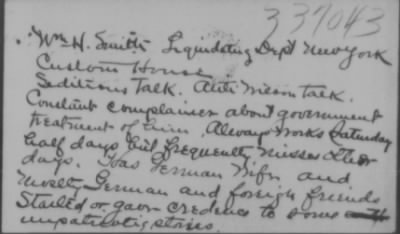 337043
Wm H. Smith Liquidating Dept New York
Custom House.
Seditious Talk. Anti Wilson Talk.
Constant complainer about government
treatment of him. Always Works Saturday
half days but frequently misses other
days. Has German Wife and
Mostly German and foreign friends
Stated or gave credence to some
unpatriotic stories.